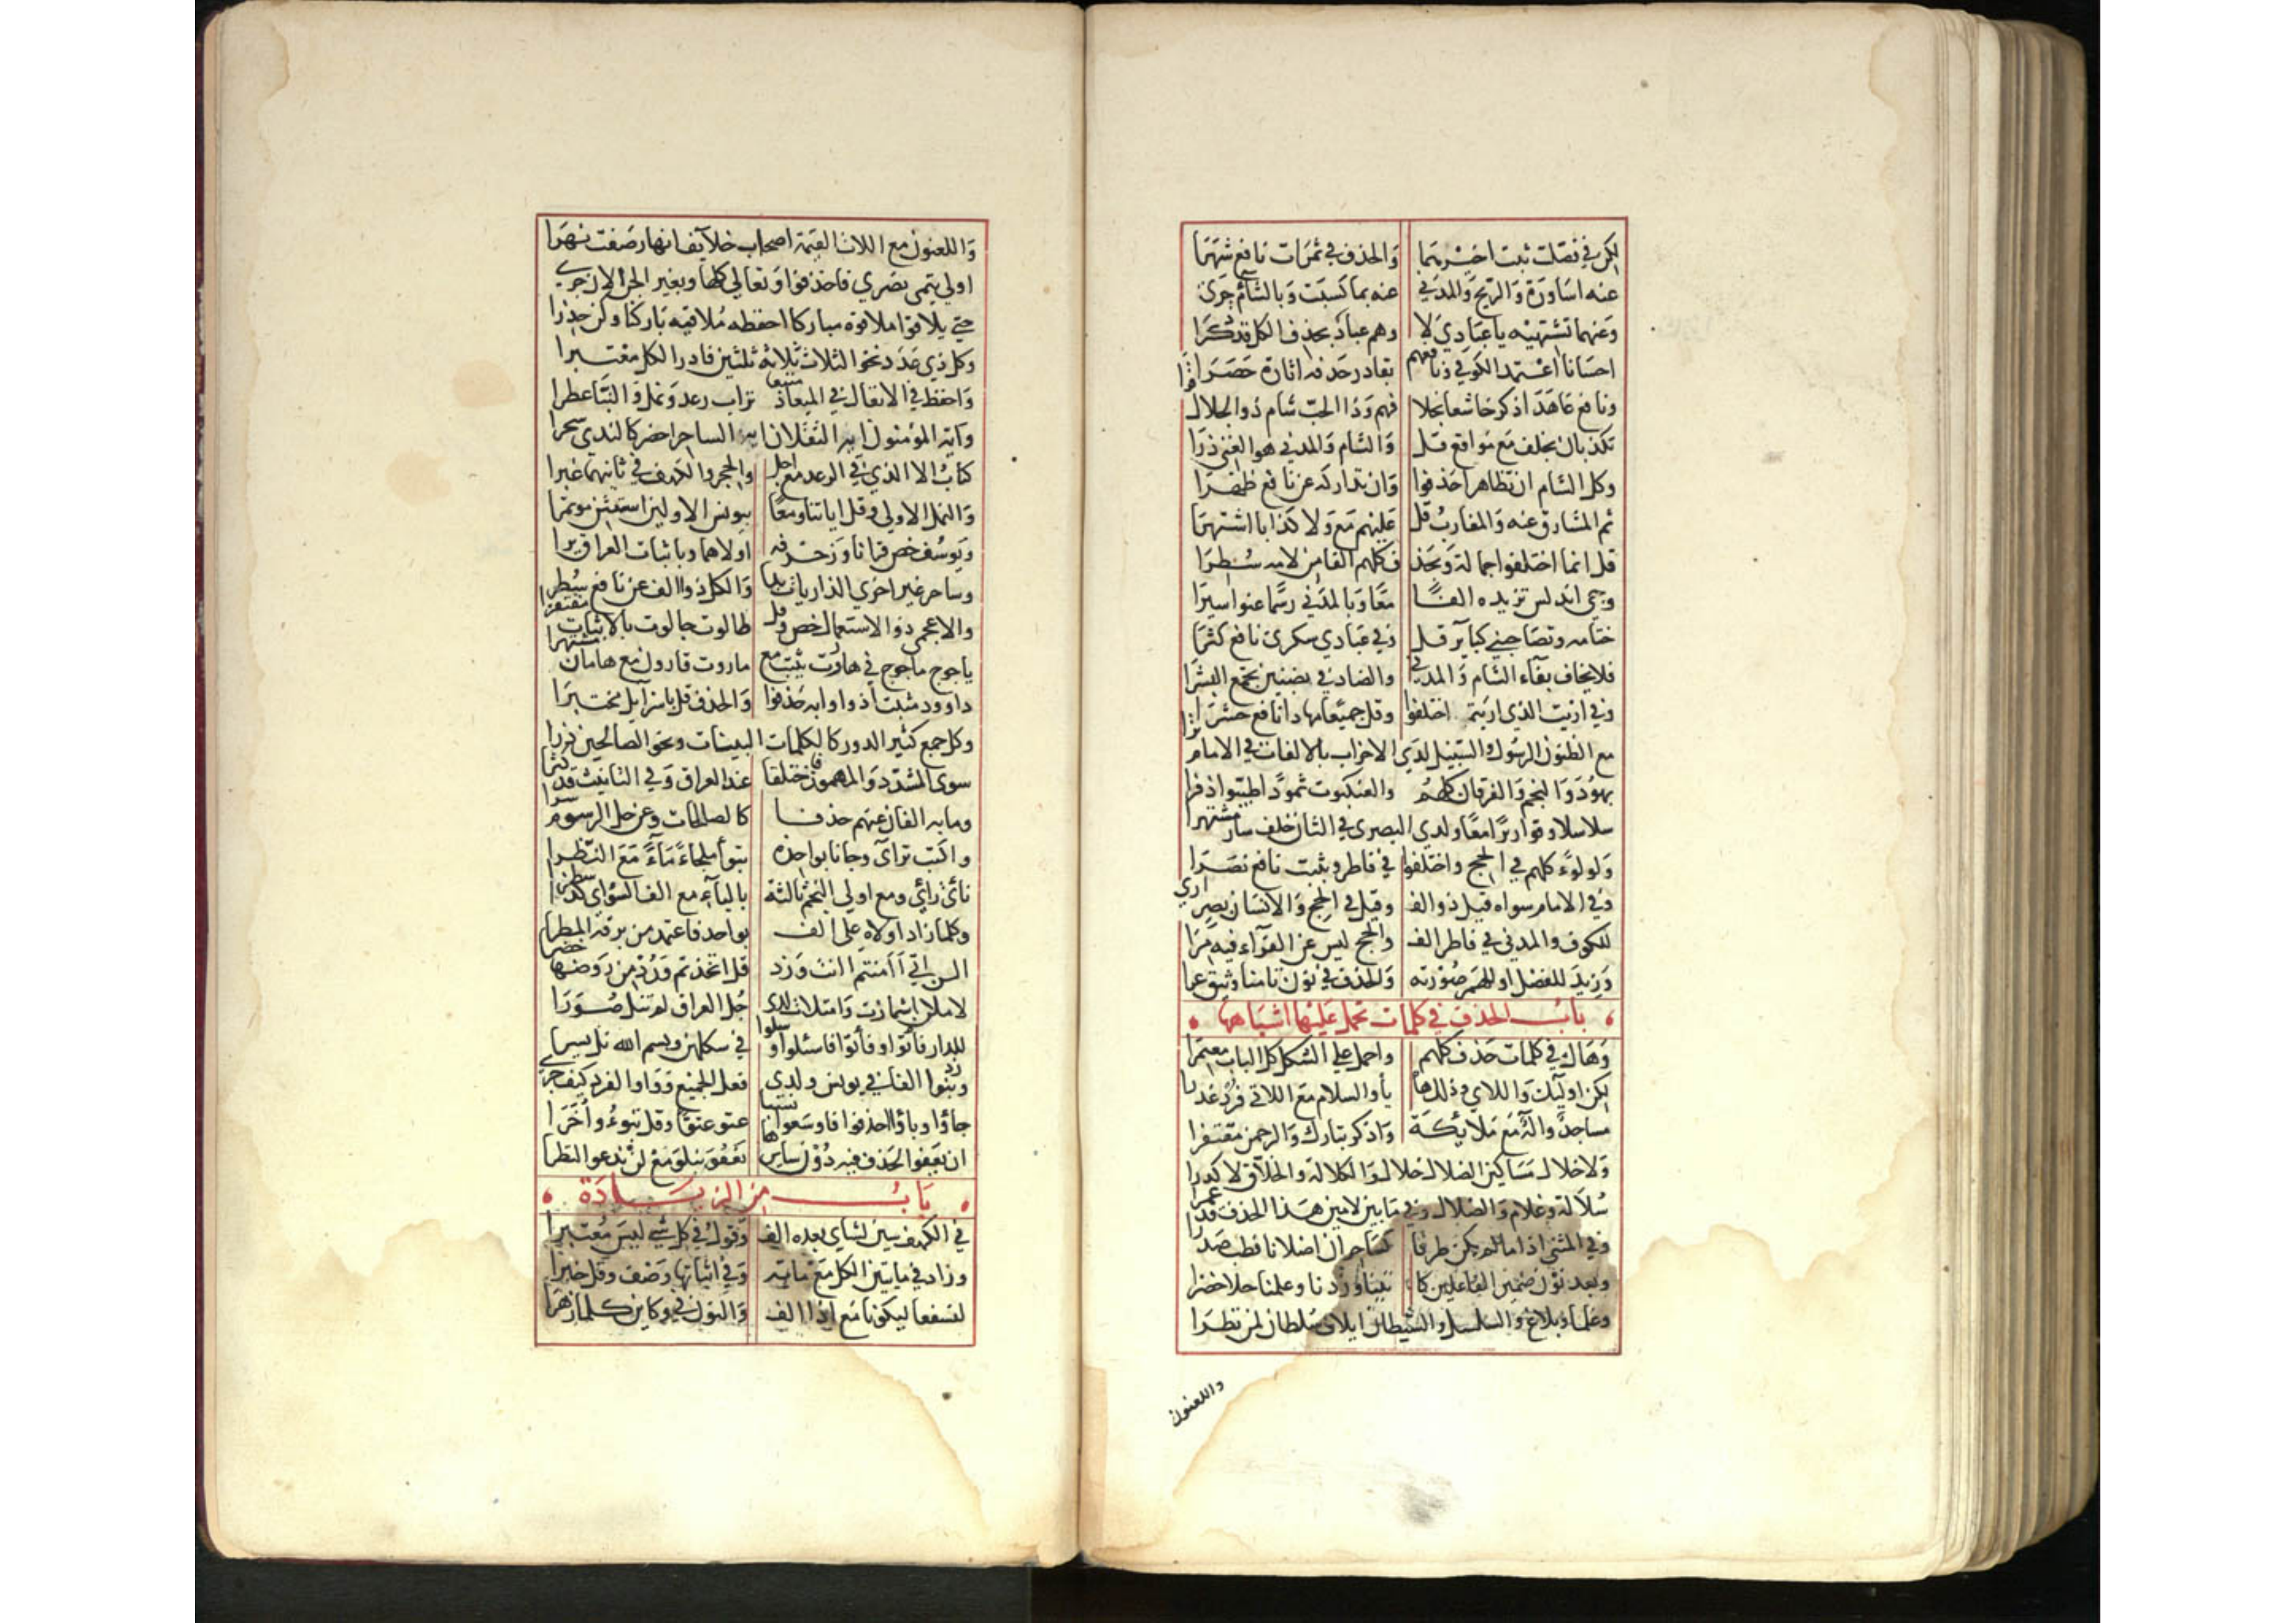 لكن في فصلت ثبت اخيرهما والحذف في ثمرات نافع شهرا
عنه اساورة والريح والمدني عنه بما كسبت وبالشآم جرى
وعنهما تشتهيه يا عبادي لا وهم عباد بحذف الكل قد ذكرا
احسانا اعتمد الكوفي ونافعهم بقادر حذفه اثارة حصرا
ونافع عاهد اذكر خاشعا بخلا فهم وذا الحب شام ذو الجلال قرا
تكذبان بخلف مع مواقع قل والشام والمدني هو الغني ذرا
وكل الشام ان تظاهرا حذفوا وان تداركه عن نافع ظهرا
ثم المشارق عنه والمغارب قل عليهم مع ولا كذابا اشتهرا
قل انما اختلفوا جمالة وبحذ ف كلهم الفا من لامه سطرا
وجئ اندلس تزيده الفا معا وبالمدني رسما عنوا سيرا
ختامه وتصاحبني كبآئر قل وفي عبادي سكرى نافع كثرا
فلا يخاف بفآء الشام والمدني والضاد في بضنين تجمع البشرا
وفي اريت الذي اريتم اختلفوا وقل جميعا مهادا نافع حشرا
مع الظنون الرسول والسبيل لدي الاحزاب بالالفات في الامام ترا
بهود والنجم والفرقان كلهم والعنكبوت ثمودا طيبوا ذفرا
سلاسلا وقواريرا معا ولدى البصري في الثان خلف سار مشتهرا
ولولوءا كلهم في الحج واختلفوا في فاطر وبثبت نافع نصرا
وفي الامام سواه قيل ذو الف وقيل في الحج والانسان بصر اري
للكوف والمدني في فاطر الف والحج ليس عن الفرآء فيه مرا
وزيد للفصل او للهمز صورته والحذف في نون تامنا وثيق عرا
باب الحذف في كلمات تحمل عليها اشباهها
وهاك في كلمات حذف كلهم واحمل على الشكل كل الباب معتبرا
لكن اوليك واللاي وذلك ها يا والسلام مع اللاتي فرد غدرا
مساجد واله مع ملآئكة واذكر تبارك والرحمن مغتفرا
ولا خلال مساكين الضلال حلال والكلالة والخلاق لا كدرا
سلالة وغلام والضلال وفي ما بين لامين هذا الحذف قد عمرا
وفي المثنى اذا ما لم يكن طرفا كساحران اضلانا فطب صدرا
وبعد نون ضمير الفاعلين كا تينا وزدنا وعلمنا حلا خضرا
وعالما وبلاغ والسلسل والشيطان ايلاف سلطان لمن نظرا
واللعنون
واللعنون مع اللات القيمة اصحاب خلآيف انهار صفت نهرا
اولي يتمى نصري فاحذفوا وتعالى كلها وبغير الجن الان جرى
حتى يلاقوا ملاقوه مباركا احفظه ملاقيه باركنا وكن حذرا
وكل ذي عدد نحو الثلاث ثلاثة ثلثين فادر الكل معتبرا
واحفظ في الانفال في الميعاد متبعا تراب رعد ونمل والنبا عطرا
وايه المؤمنون ايه الثقلان ايه الساحر احضر كالندي سحرا
كتاب الا الذي في الرعد مع اجل والحجر والكهف في ثانيهما غبرا
والنمل الاولى وقل اياتنا ومعا بيونس الاولين استثن موتمرا
ويوسف خص قرانا وزخرفه اولاهما وباثبات العراق يرا
وساحر غير اخرى الذاريات بدا والكل ذو الف عن نافع سطرا
والاعجمي ذو الاستعمال خص وقل طالوت جالوت بالاثبات مغتفرا
ياجوج ماجوج في هاروت يثبت مع ماروت قارون مع هامان مشتهرا
داوود مثبت اذ واوا به حذفوا والحذف قل باسرآيل مختبرا
وكل جمع كثير الدور كالكلمات البينات ونحو الصالحين ذرا
سوى المشدد والمهموز فاختلفا عند العراق وفي التانيث قد كثرا
وما به الفان عنهم حذفا كالصالحات وعن جل الرسوم سرا
واكتب ترآى وجانا بواحدة تبوأ ملجاءً مآءً مع النظرا
ناى راى ومع اولي النجم ثالثة باليآء مع الف السواى كذا سطرا
وكلما زاد اولاه على الف بواحد فاعتمد من برقه المطرا
الان اتى أامنتم اانت وزد قل اتخذتم ورد من روضها خضرا
لاملان اشمازت وامتلات لدى جل العراق لم تنل صورا
للدار فاتوا وفأتوا فاسئلوا وسلوا في شكلهن وبسم الله نل يسرا
وزد بنوا الفا في يونس ولدى فعل الجميع وواو الفرد كيف جرى
جاؤا وباؤا احذفوا فاو سعوا بسبا عتو عتوا وقل تبوءو اخرا
ان يعفو الحذف فيه دون سايرها يعفو يبلو مع لن ندعو النظرا
باب من الزيادة
في الكهف شين لشاي بعده الف وقول في كل شي ليس معتبرا
وزاد في مايتين الكل مع ماية وفي اثباتها وصف وقل خبرا
لنسفعا ليكونا مع اذا الف والنون في وكاين كلها زهرا